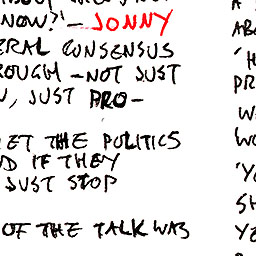 NOW?' – JONNY
ERAL CONSENSUS
ROUGH – NOT JUST
, JUST PRO–
ET THE POLITICS
D IF THEY
JUST STOP
OF THE TALK WAS
A
'H
PR
W
WO
'Y
SH
YE